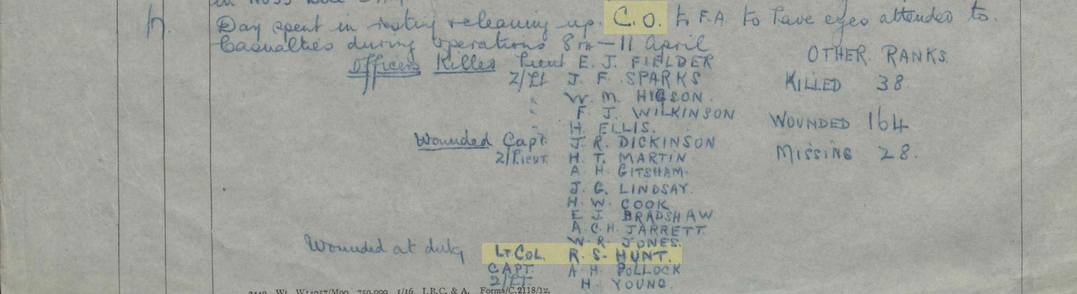 Day spent in resting & cleaning up. C.O. to F.A. to have eyes attended to.
Casualties during operations 8th – 11 April
Officers Killed Lieut E. J. FIELDER
2/Lt J. F. SPARKS
" W. M. HIGSON.
" F. J. WILKINSON
" H. ELLIS.
Wounded Capt. J. R. DICKINSON
2/Lieut H. T. MARTIN.
A. H. GITSHAM.
J. G. LINDSAY.
H. W. COOK
E. J. BRADSHAW
A. C. H. JARRETT.
W. R. JONES.
Wounded at duty LT COL. R. S. HUNT.
CAPT. A. H. POLLOCK
2/LT. H. YOUNG.
OTHER RANKS
KILLED 38
WOUNDED 164
MISSING 28.
750,000 1/16 J.B.C. & A. Forms/C.2118/12.